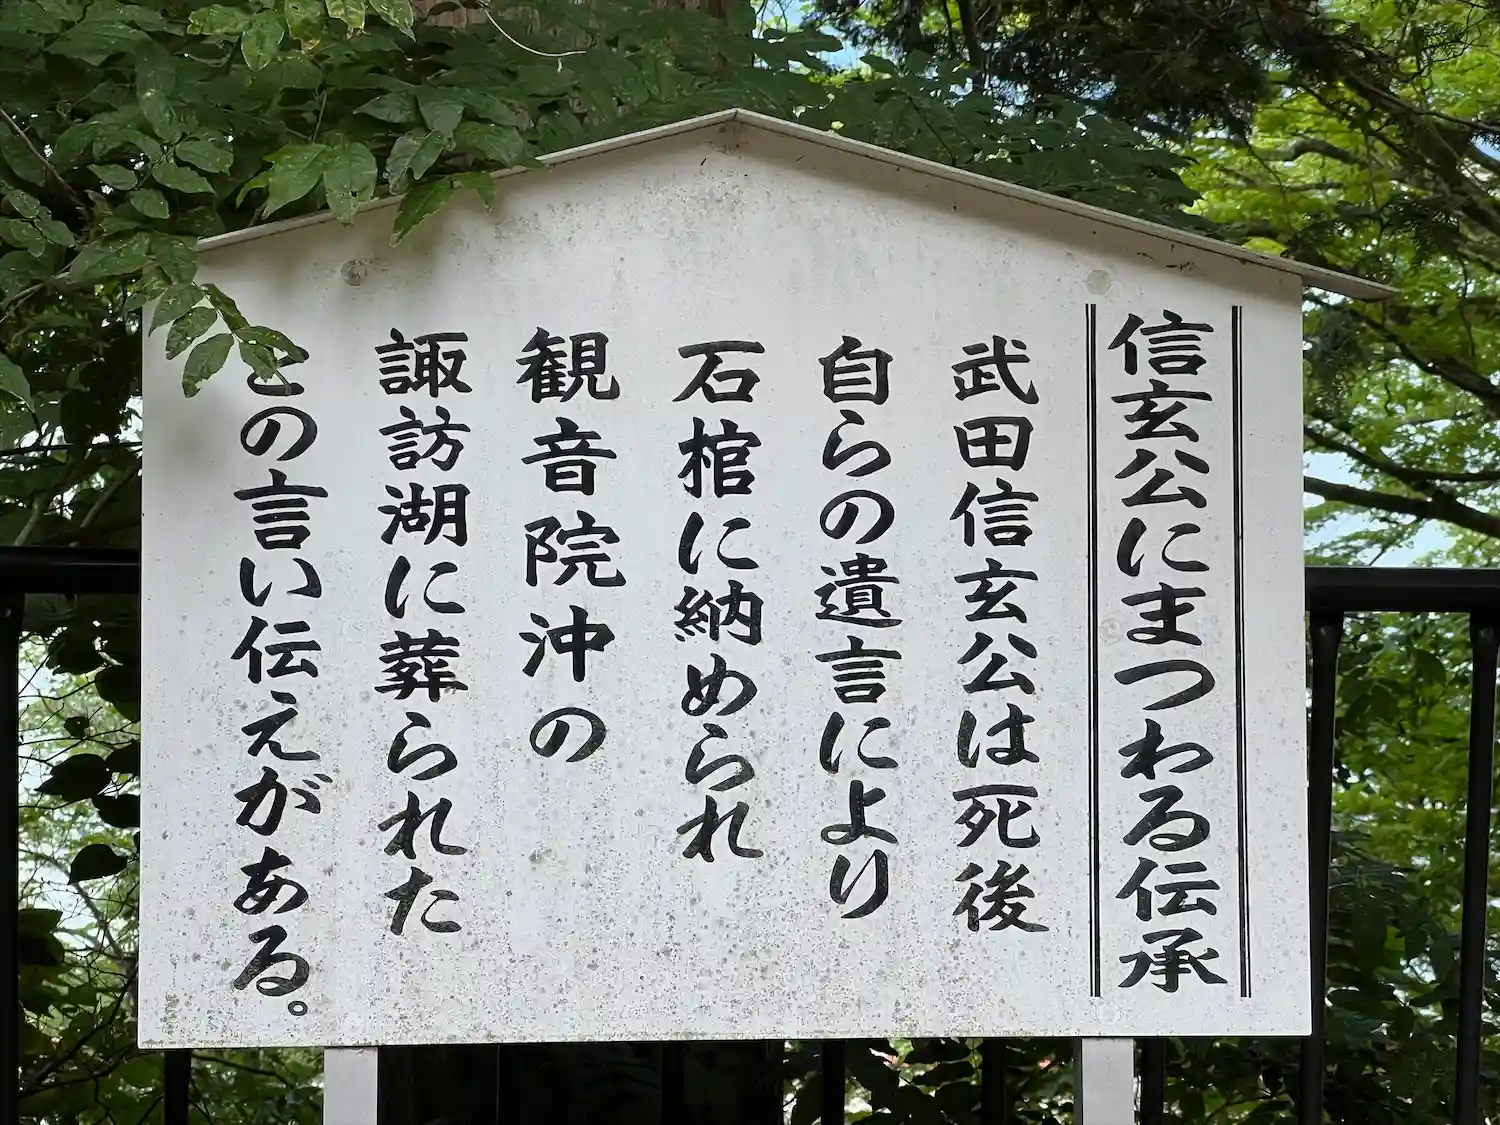 信玄公にまつわる伝承
武田信玄公は死後
自らの遺言により
石棺に納められ
観音院沖の
諏訪湖に葬られた
との言い伝えがある。